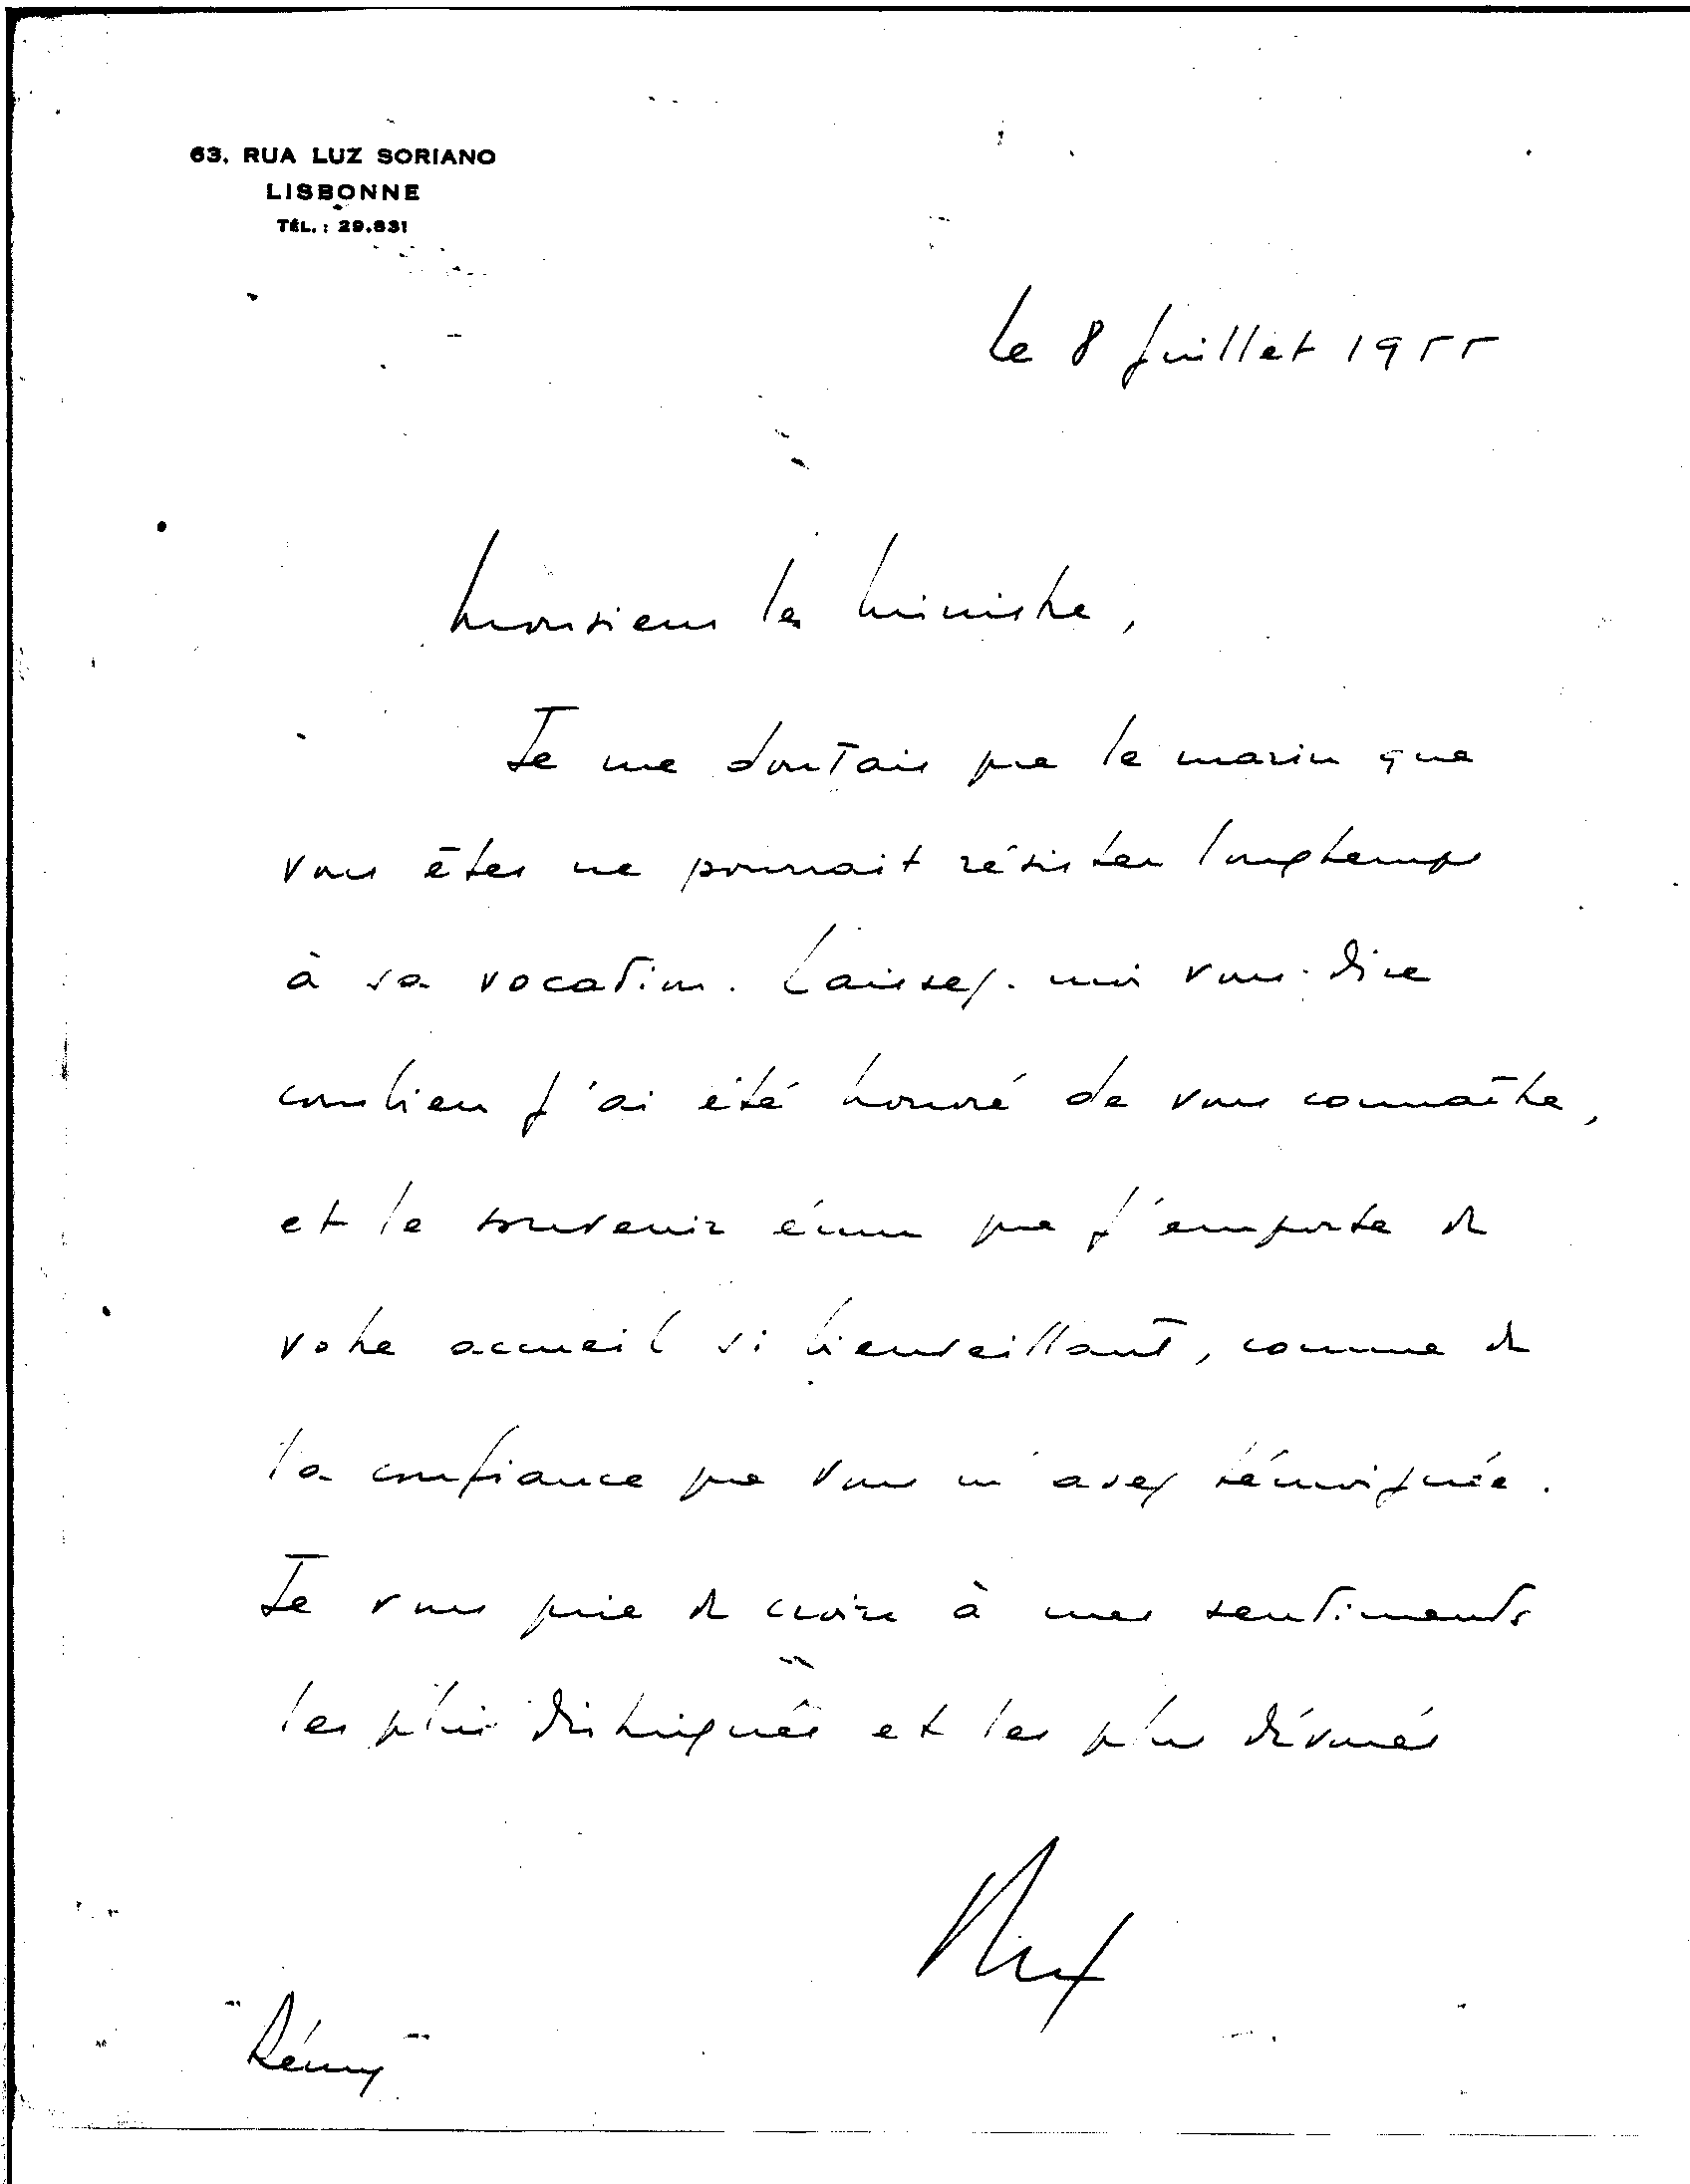 63, RUA LUZ SORIANO
LISBONNE
TÉL. : 29.831
Le 8 Juillet 1955
Monsieur le Ministre,
Je me doutais que le marin que
vous êtes ne pourrait résister longtemps
à sa vocation. Laissez-moi vous dire
combien j'ai été honoré de vous connaître,
et le souvenir ému que j'emporte de
votre accueil si bienveillant, comme de
la confiance que vous m'avez témoignée.
Je vous prie de croire à mes sentiments
les plus distingués et les plus dévoués
"Rémy"